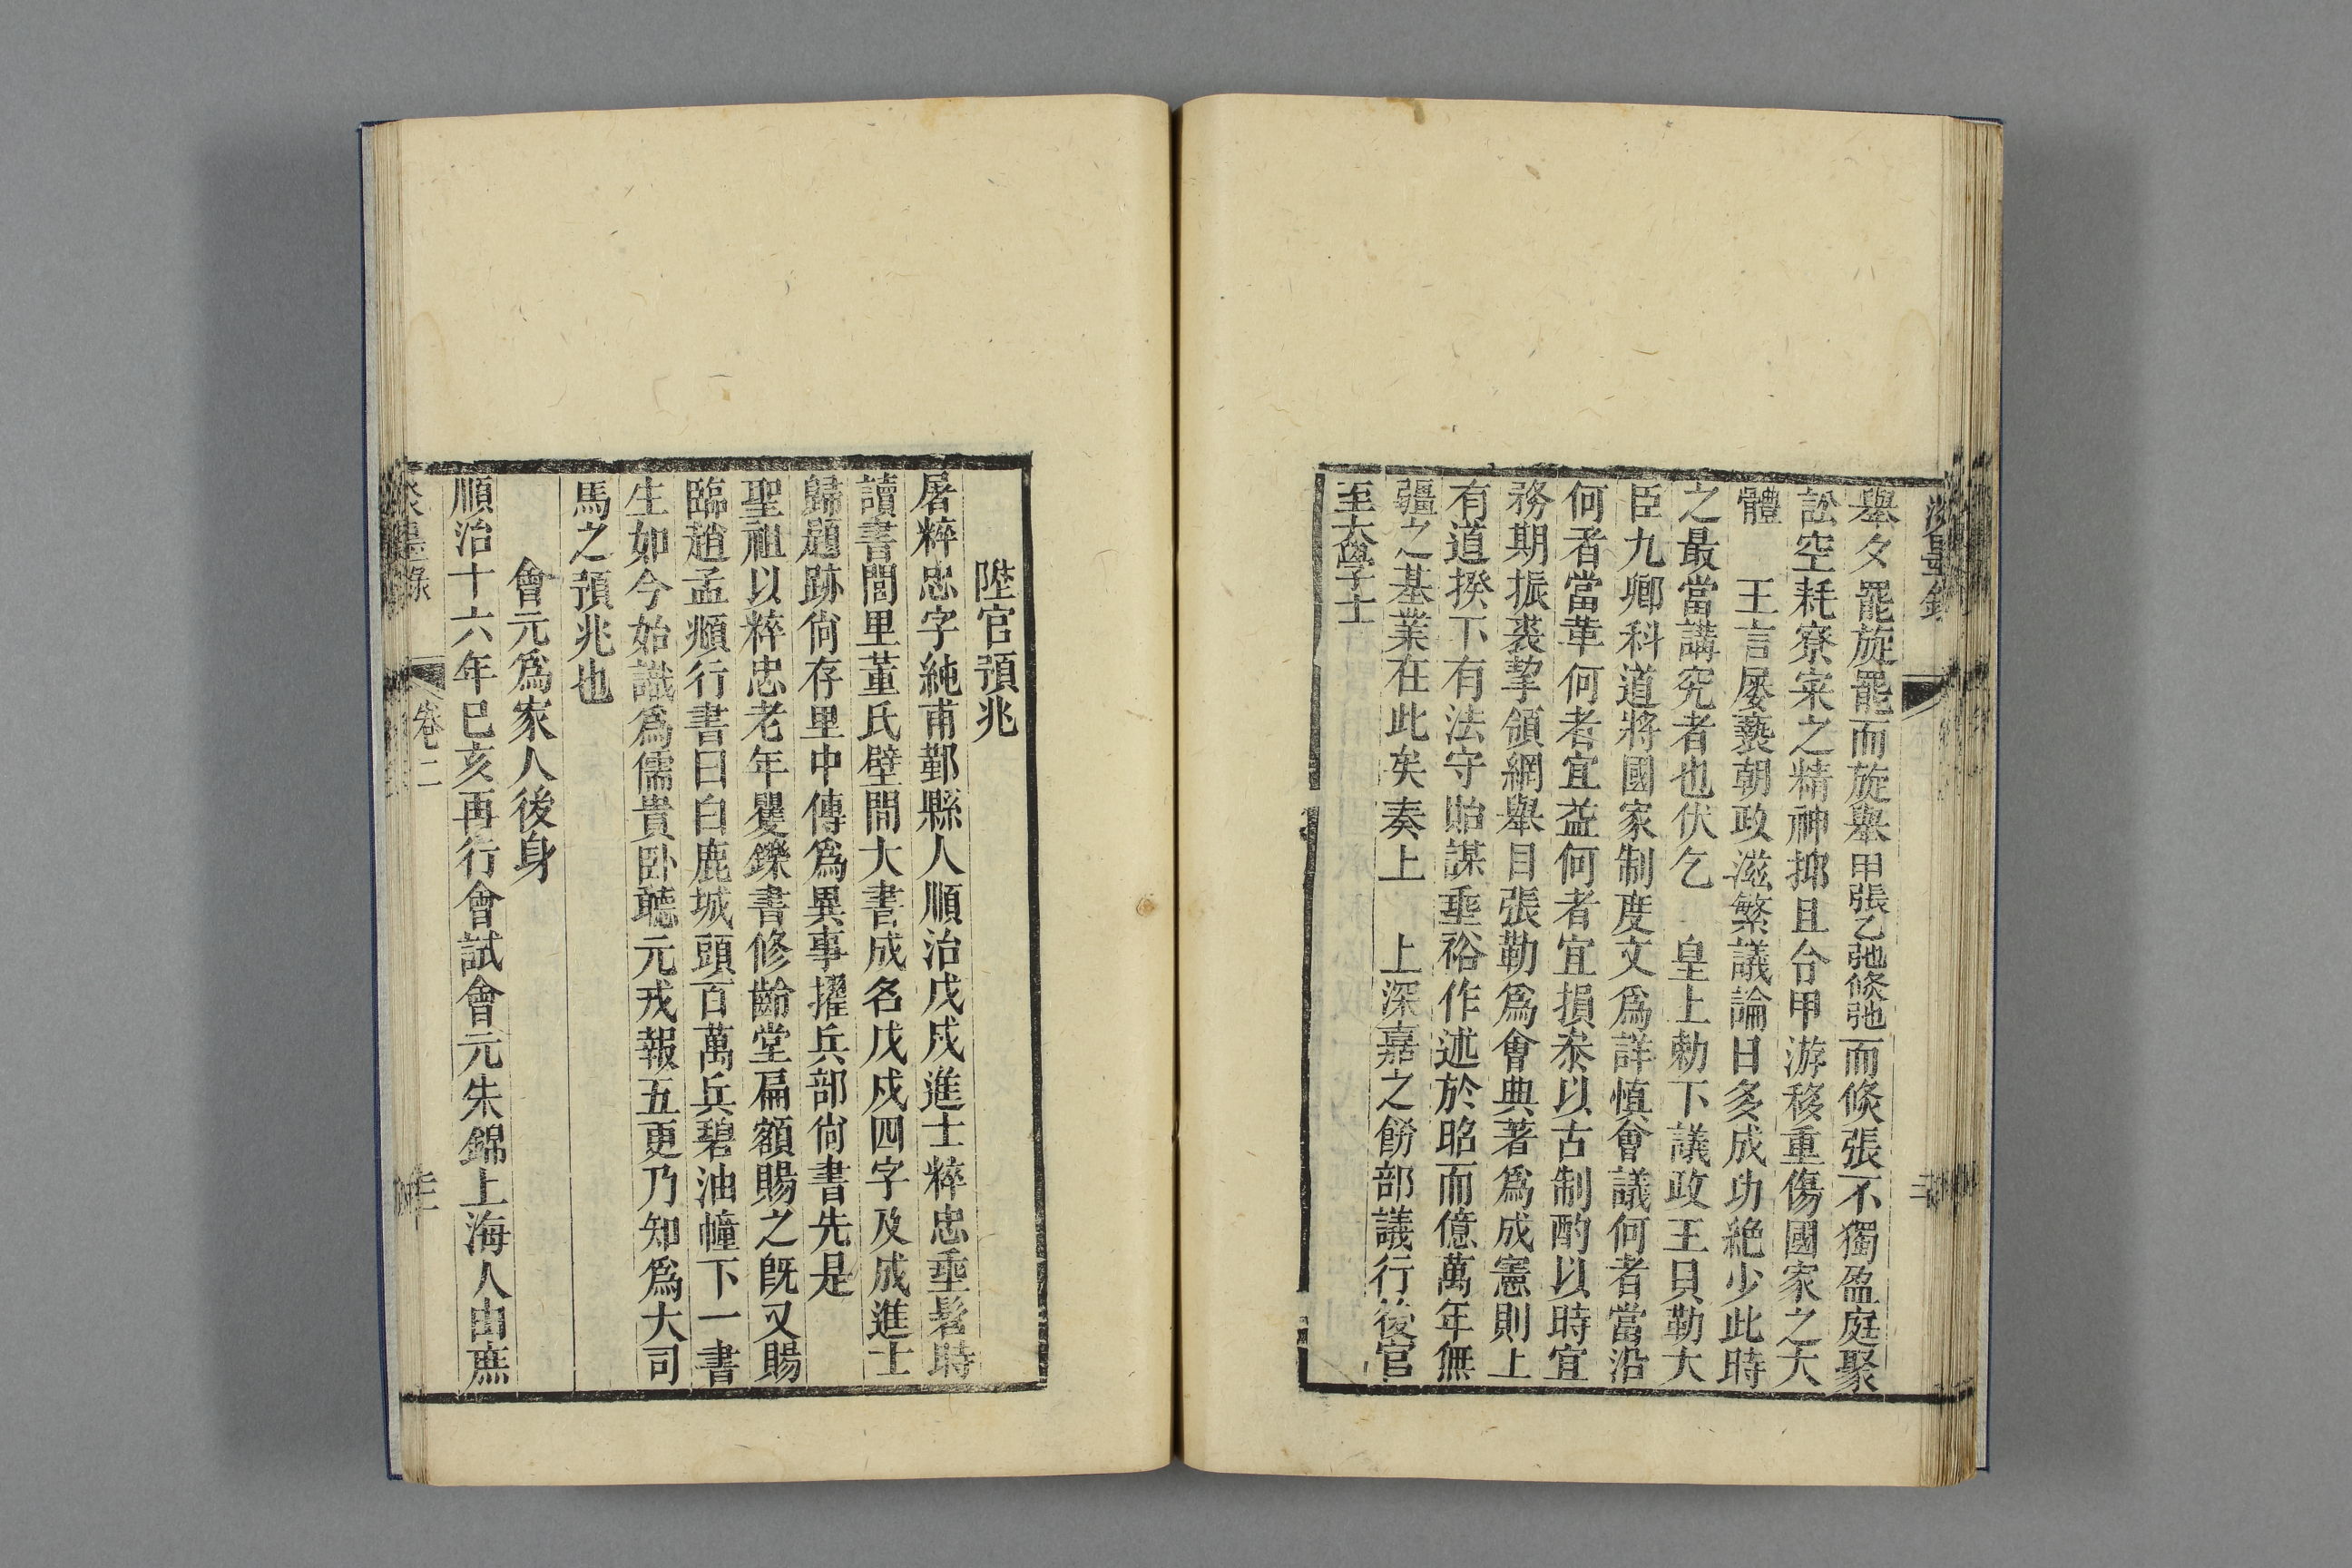 舉夕罷旋罷而旋舉甲張乙弛倐弛而倐張不獨盈庭聚
訟空耗寮寀之精神抑且台甲游移重傷國家之大
體　王言屡褻朝政滋繁議論日多成功絶少此時
之最當講究者也伏乞　皇上勅下議政王貝勒大
臣九卿科道將國家制度文爲詳慎會議何者當沿
何者當革何者宜益何者宜損叅以古制酌以時宜
務期振裘挈領網舉目張勒爲會典著爲成憲則上
有道揆下有法守貽謀垂裕作述於昭而億萬年無
疆之基業在此矣奏上　上深嘉之飭部議行後官
至大學士
陞官預兆
屠粹忠字純甫鄞縣人順治戊戌進士粹忠垂髫時
讀書閭里董氏壁間大書成名戊戌四字及成進士
歸題跡尙存里中傳爲異事擢兵部尙書先是
聖祖以粹忠老年矍鑠書修齡堂扁額賜之旣又賜
臨趙孟頫行書曰白鹿城頭百萬兵碧油幢下一書
生如今始識爲儒貴卧聽元戎報五更乃知爲大司
馬之預兆也
會元爲家人後身
順治十六年已亥再行會試會元朱錦上海人由庶
卷二